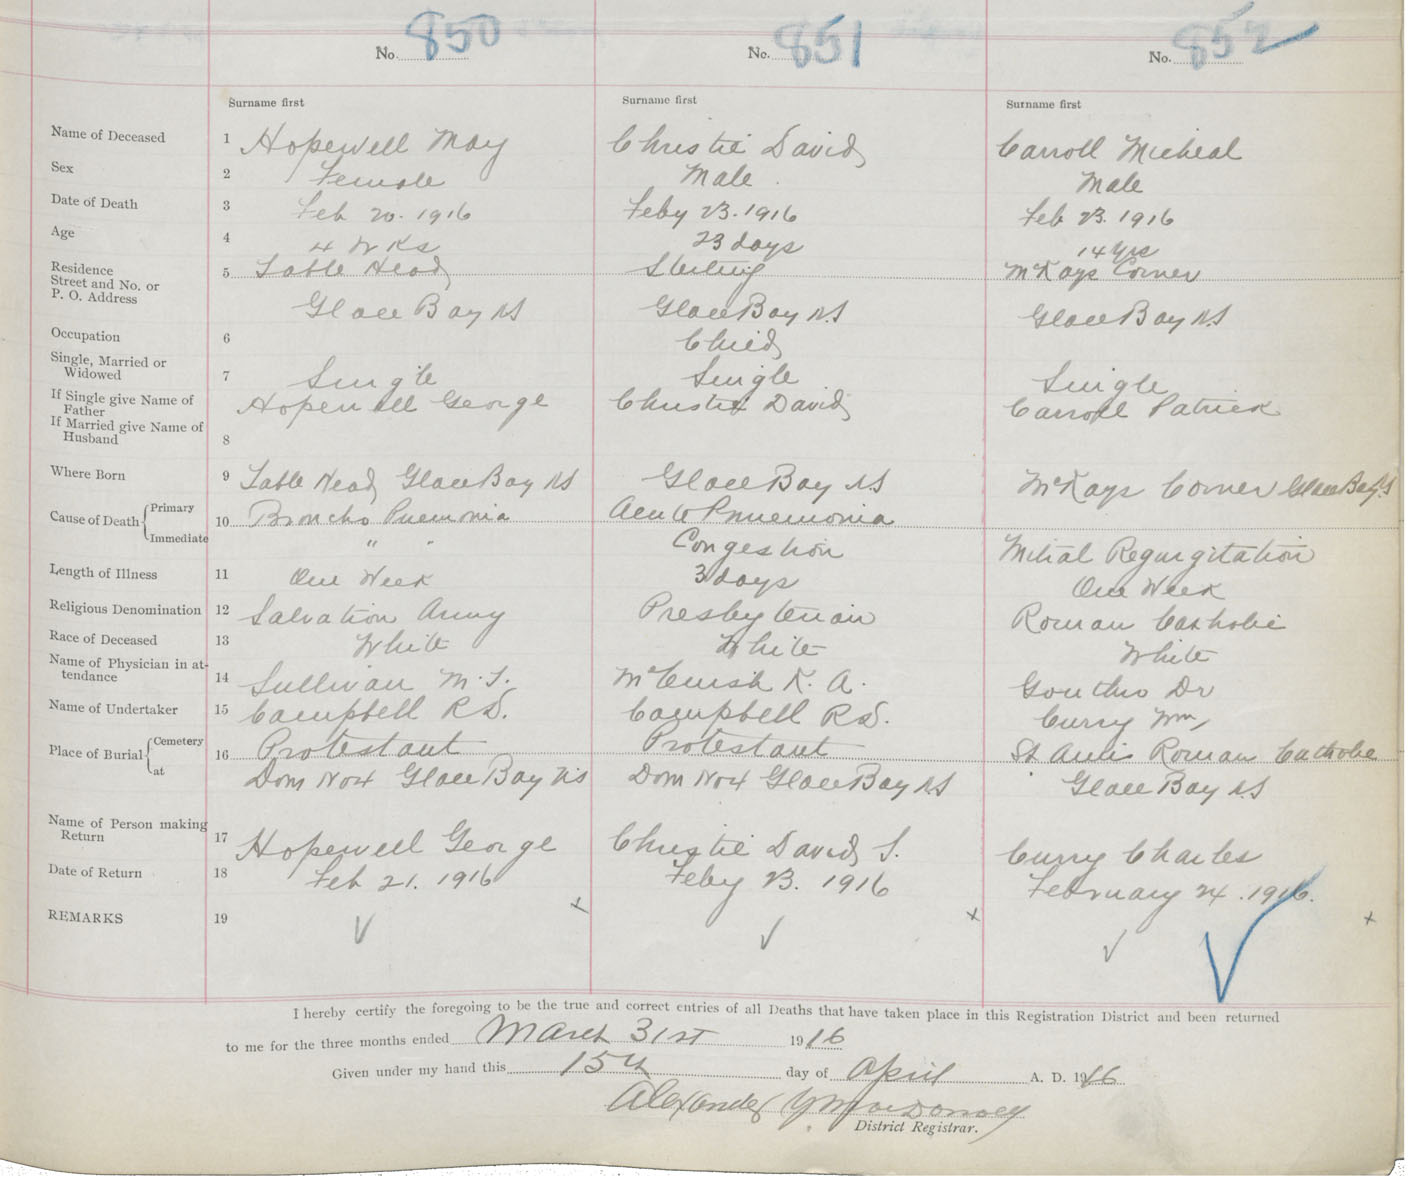 No. 850 No. 851 No. 852
Surname first Surname first Surname first
Name of Deceased 1 Hopewell May Christie David Carroll Micheal
Sex 2 Female Male Male
Date of Death 3 Feb 20. 1916 Feby 23. 1916 Feb 23. 1916
Age 4 4 Wks 23 days 14 yrs
Residence 5 Table Head Sterling McKays Corner
Street and No. or
P. O. Address Glace Bay NS Glace Bay N.S Glace Bay N.S
Occupation 6 Child
Single, Married or
Widowed 7 Single Single Single
If Single give Name of
Father Hopewell George Christie David Carroll Patrick
If Married give Name of
Husband 8
Where Born 9 Table Head Glace Bay NS Glace Bay NS McKays Corner Glace Bay N.S
Cause of Death Primary 10 Broncho Pnemonia Acute Pnuemonia
Immediate " " Congestion Mitral Regurgitation
Length of Illness 11 One Week 3 days One Week
Religious Denomination 12 Salvation Army Presbyterian Roman Catholic
Race of Deceased 13 White White White
Name of Physician in at-
tendance 14 Sullivan M. T. K. A. Dr
Name of Undertaker 15 Campbell R S. Campbell R S. Curry Wm
Place of Burial Cemetery 16 Protestant Protestant St Anns Roman Catholic
at Dom No 4 Glace Bay NS Dom No 4 Glace Bay NS Glace Bay N.S
Name of Person making
Return 17 Hopewell George Christie David S. Curry Charles
Date of Return 18 Feb 21. 1916 Feby 23. 1916 February 24. 1916.
REMARKS 19
I hereby certify the foregoing to be the true and correct entries of all Deaths that have taken place in this Registration District and been returned
to me for the three months ended March 31st 1916
Given under my hand this 15th day of April A. D. 1916
Alexander
District Registrar.